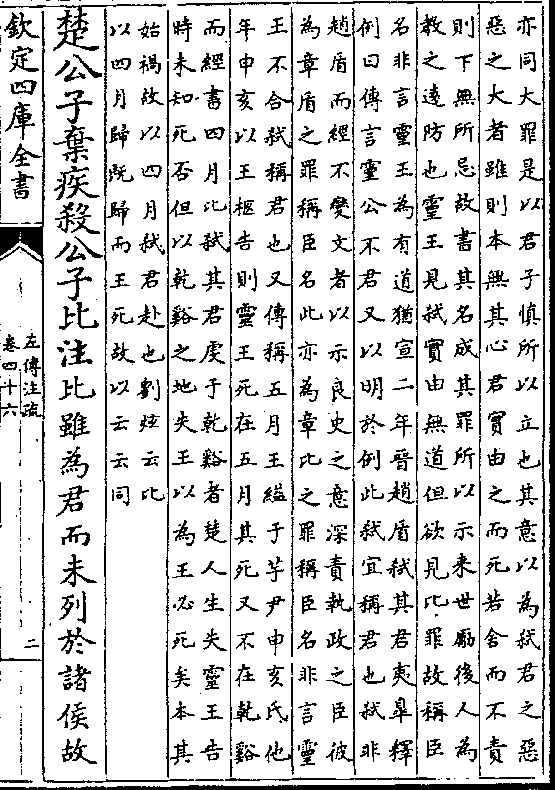 亦同大罪是以君子慎所以立也其意以為弑君之惡
惡之大者雖則本無其心君實由之而死若舍而不責
則下無所忌故書其名成其罪所以示来世勵後人為
教之逺防也靈王見弑實由無道但欲見比罪故稱臣
名非言靈王為有道猶宣二年晉趙盾弑其君夷皐釋
例曰傳言靈公不君又以明於例此弑宜稱君也弑非
趙盾而經不變文者以示良史之意深責執政之臣彼
為章盾之罪稱臣名此亦為章比之罪稱臣名非言靈
王不合弑稱君也又傳稱五月王縊于芋尹申亥氏他
年申亥以王柩告則靈王死在五月其死又不在乾谿
而經書四月比弑其君虔于乾谿者楚人生失靈王告
時未知死否但以乾谿之地失王以為王必死矣本其
始禍故以四月弑君赴也劉炫云比
以四月歸既歸而王死故以云云同
楚公子棄疾殺公子比注比雖為君而未列於諸侯故
欽定四庫全書
左傳注疏
卷四十六
二